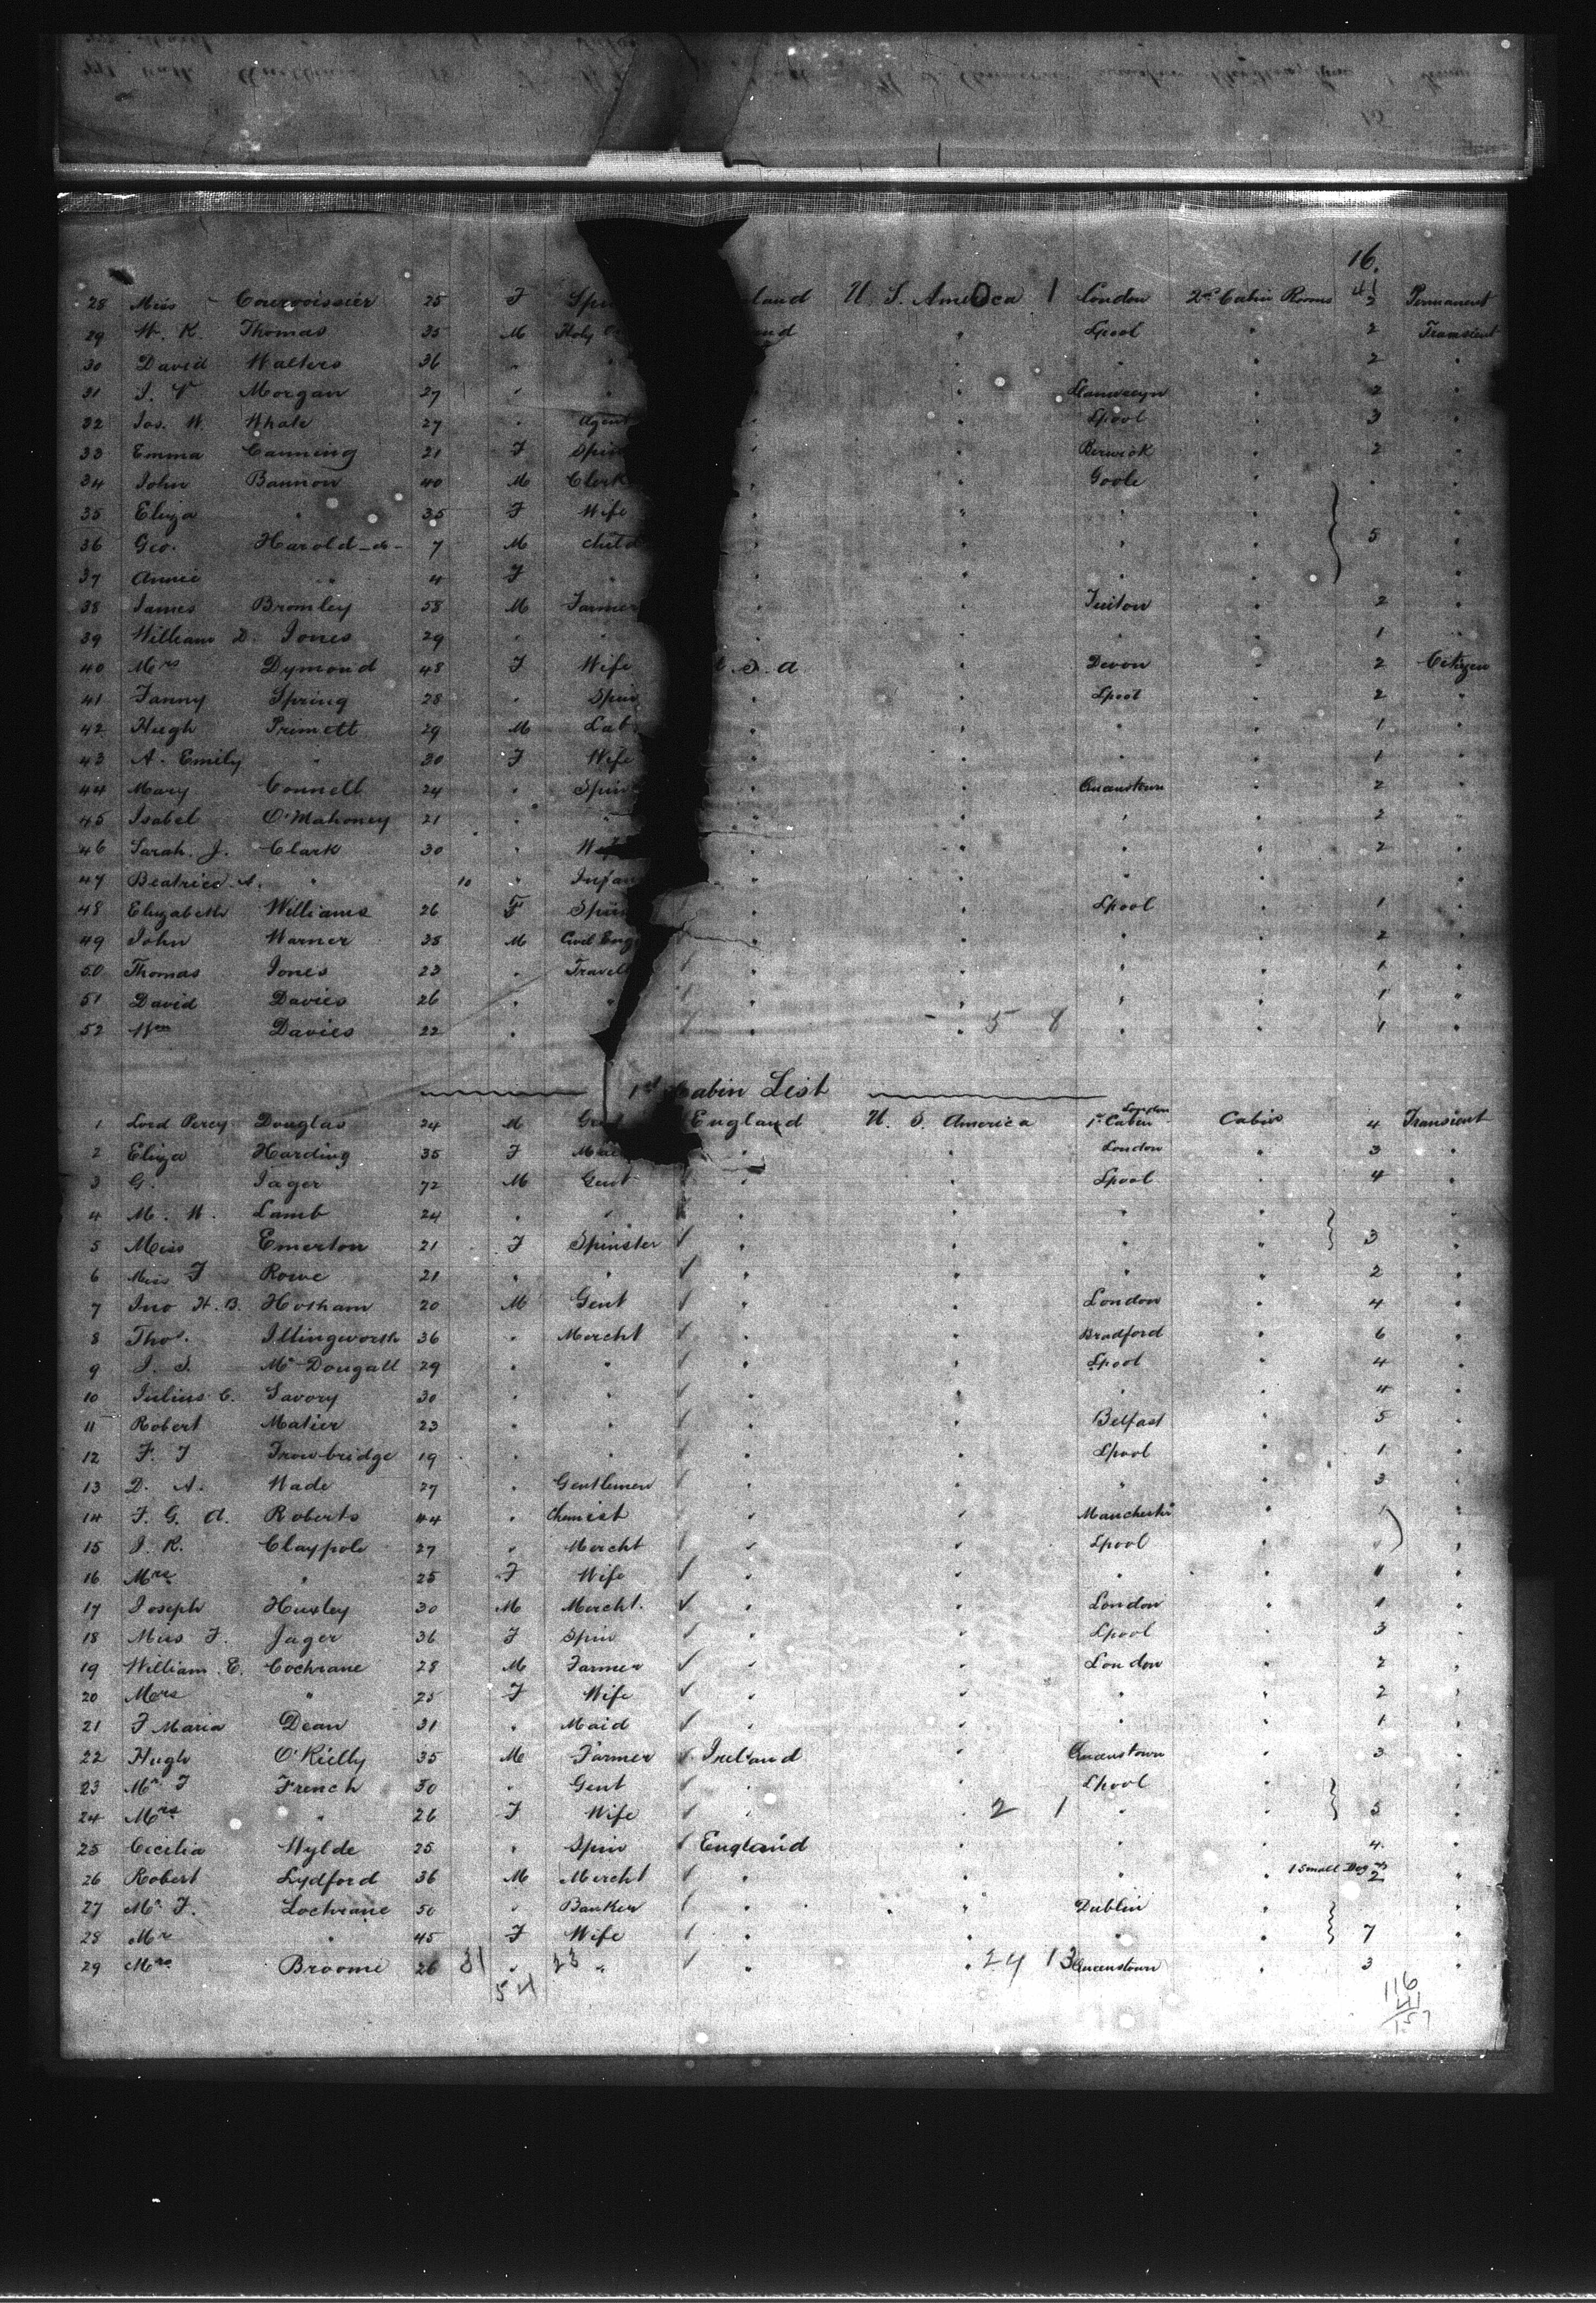 16.
41
28 Miss - Courvoissier 25 F Spin land U. S. America 1 London 2nd Cabin Rooms 2 Permanent
29 W. K. Thomas 35 M Holy and " Lpool " 2 Transient
30 David Walters 36 " " " " " " 2 "
31 J. V Morgan 27 " " " " " 2 "
32 Jas. W. Whale 27 " Agent " " Lpool " 3 "
33 Emma Canning 21 F Spin " " Berwick " 2 "
34 John Bannon 40 M Clerk " " Goole " " "
35 Eliza " 35 F Wife " " " " "
36 Geo. Harold -do- 7 M Child " " " " 5 "
37 Annie " " 4 F " " " " " "
38 James Bromley 58 M Farmer " " " 2 "
39 William D. Jones 29 " " " " " " 1 "
40 Mrs Dymond 48 F Wife S. a " Devon " 2 Citizen
41 Fanny Spring 28 " Spin " " Lpool " 2 "
42 Hugh Primett 29 M Lab. " " " " 1 "
43 A. Emily " 30 F Wife " " " " 1 "
44 Mary Connell 24 " Spin " " Queenstown " 2 "
45 Isabel O'Mahoney 21 " " " " " " 2 "
46 Sarah. J. Clark 30 " W " " " " 2 "
47 Beatrice A. " 10 " Infan " " " " "
48 Elizabeth Williams 26 F Spin " " Lpool " 1 "
49 John Warner 38 M Civil Eng " " " " 2 "
50 Thomas Jones 23 " Travell " " " " 1 "
51 David Davies 26 " " " " " " 1 "
52 Wm Davies 22 " " " 5 8 " " 1 "
1st Cabin List
1 Lord Percy Douglas 24 M Gent England U. S. America London 1st Cabin Cabin 4 Transient
2 Eliza Harding 35 F Mai " " London " 3 "
3 G. Jager 72 M Gent " " Lpool " 4 "
4 M. W. Lamb 24 " " " " " "
5 Miss Emerton 21 F Spinster " " " " 3 "
6 Miss F Rowe 21 " " " " " " 2 "
7 Jno H. B. Hotham 20 M Gent " " London " 4 "
8 Thos. Illingworth 36 " Mercht " " Bradford " 6 "
9 J. S. McDougall 29 " " " " Lpool " 4 "
10 Julius C. Savory 30 " " " " " " 4 "
11 Robert Matier 23 " " " " Belfast " 5 "
12 F. T Trowbridge 19 " " " " Lpool " 1 "
13 D. A. Wade 27 " Gentlemen " " " " 3 "
14 F. G. A. Roberts 44 " Chemist " " Manchester " 1 "
15 J. R. Claypole 27 " Mercht " " Lpool " " "
16 Mrs " 25 F Wife " " " " " "
17 Joseph Huxley 30 M Mercht. " " London " 1 "
18 Miss F. Jager 36 F Spin " " Lpool " 3 "
19 William E. Cochrane 28 M Farmer " " London " 2 "
20 Mrs " 25 F Wife " " " " 2 "
21 F Maria Dean 31 " Maid " " " " 1 "
22 Hugh O'Rielly 35 M Farmer Ireland " Queenstown " 3 "
23 Mr F French 30 " Gent " " Lpool " "
24 Mrs " 26 F Wife " 2 1 " " 5 "
25 Cecilia Wylde 25 " Spin England " " " 4 "
26 Robert Lydford 36 M Mercht " " " 1 Small Dog 2 "
27 Mr F. Lochrane 50 " Banker " " Dublin " "
28 Mr " 45 F Wife " " " " 7 "
29 Mrs Broome 26 31 " 23 " " " 24 13 Queenstown " 3 "
54
116
41
157